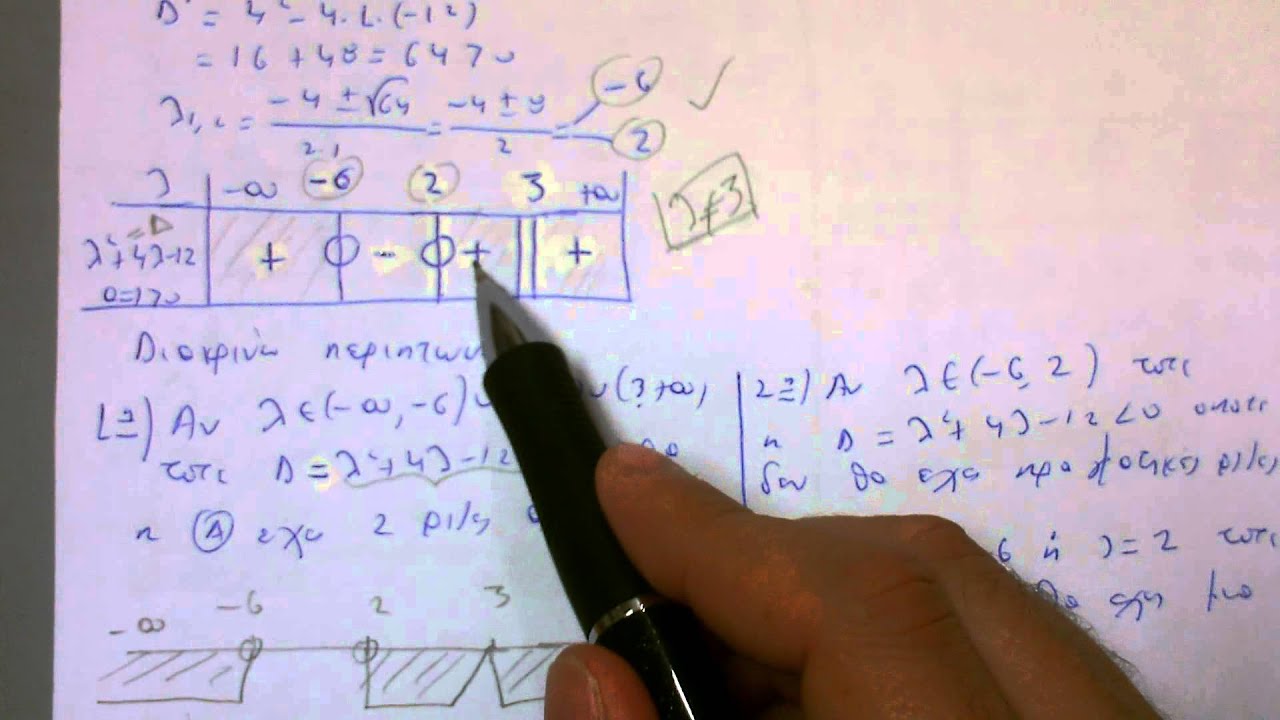 Δ' = 4² - 4.1.(-12)
= 16 + 48 = 64 > 0
λ₁,₂ = (-4 ± √64)/(2.1) = (-4 ± 8)/2 = -6 2
λ -∞ -6 2 3 +∞
λ≠3
=Δ
λ²+4λ-12 + 0 - 0 + || +
Διακρίνω
1η) Αν λ∈(-∞,-6)υ υ(3,+∞)
τοτε Δ = λ²+4λ-12
η Α εχει 2 ριζες
2η) Αν λ∈(-6, 2) τοτε
η Δ = λ²+4λ-12<0 οποτε
δεν θα εχει πραγματικές ρίζες
6 ή λ=2 τοτε
θα εχει μια
-∞ -6 2 3